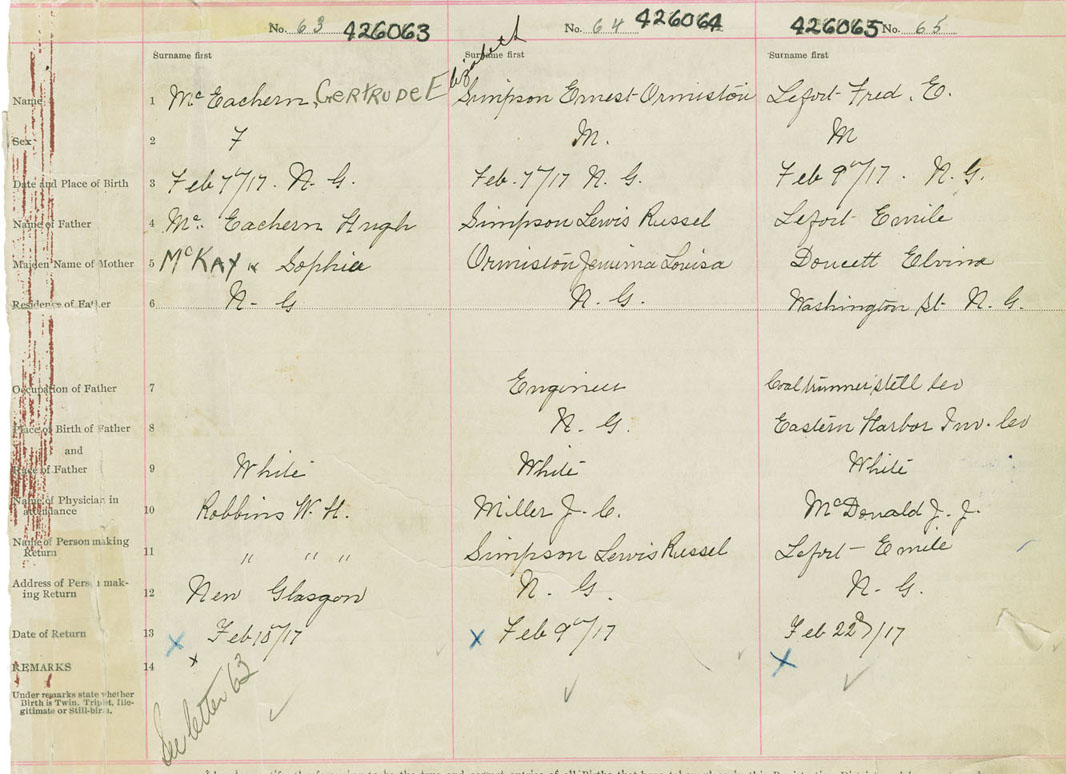 No. 63 426063 No. 64 426064 426065 No. 65
Surname first Surname first Surname first
Name 1 Mc Eachern, GERTRUDE Elizabeth Simpson Ernest Ormiston Lefort Fred. E.
Sex 2 F M. M
Date and Place of Birth 3 Feb 7"/17. N. G. Feb. 7"/17 N. G. Feb 9"/17. N. G.
Name of Father 4 Mc. Eachern Hugh Simpson Lewis Russel Lefort Emile
Maiden Name of Mother 5 McKAY x Sophia Ormiston Jemima Louisa Doucett Elvina
Residence of Father 6 N. G N. G. Washington St. N. G.
Occupation of Father 7 Engineer Coal trimmer, Stell Co
Place of Birth of Father 8 N. G. Eastern Harbor Inv. Co
and
Race of Father 9 White White White
Name of Physician in attendance 10 Robbins W. H. Miller J. C. McDonald J. J.
Name of Person making Return 11 " " " Simpson Lewis Russel Lefort Emile
Address of Person making Return 12 New Glasgow N. G. N. G.
Date of Return 13 x Feb 15/17 x Feb 9"/17 Feb 22"/17
REMARKS 14 x x
Under remarks state whether
Birth is Twin, Triplet, Ille-
gitimate or Still-birth.
See letter 63